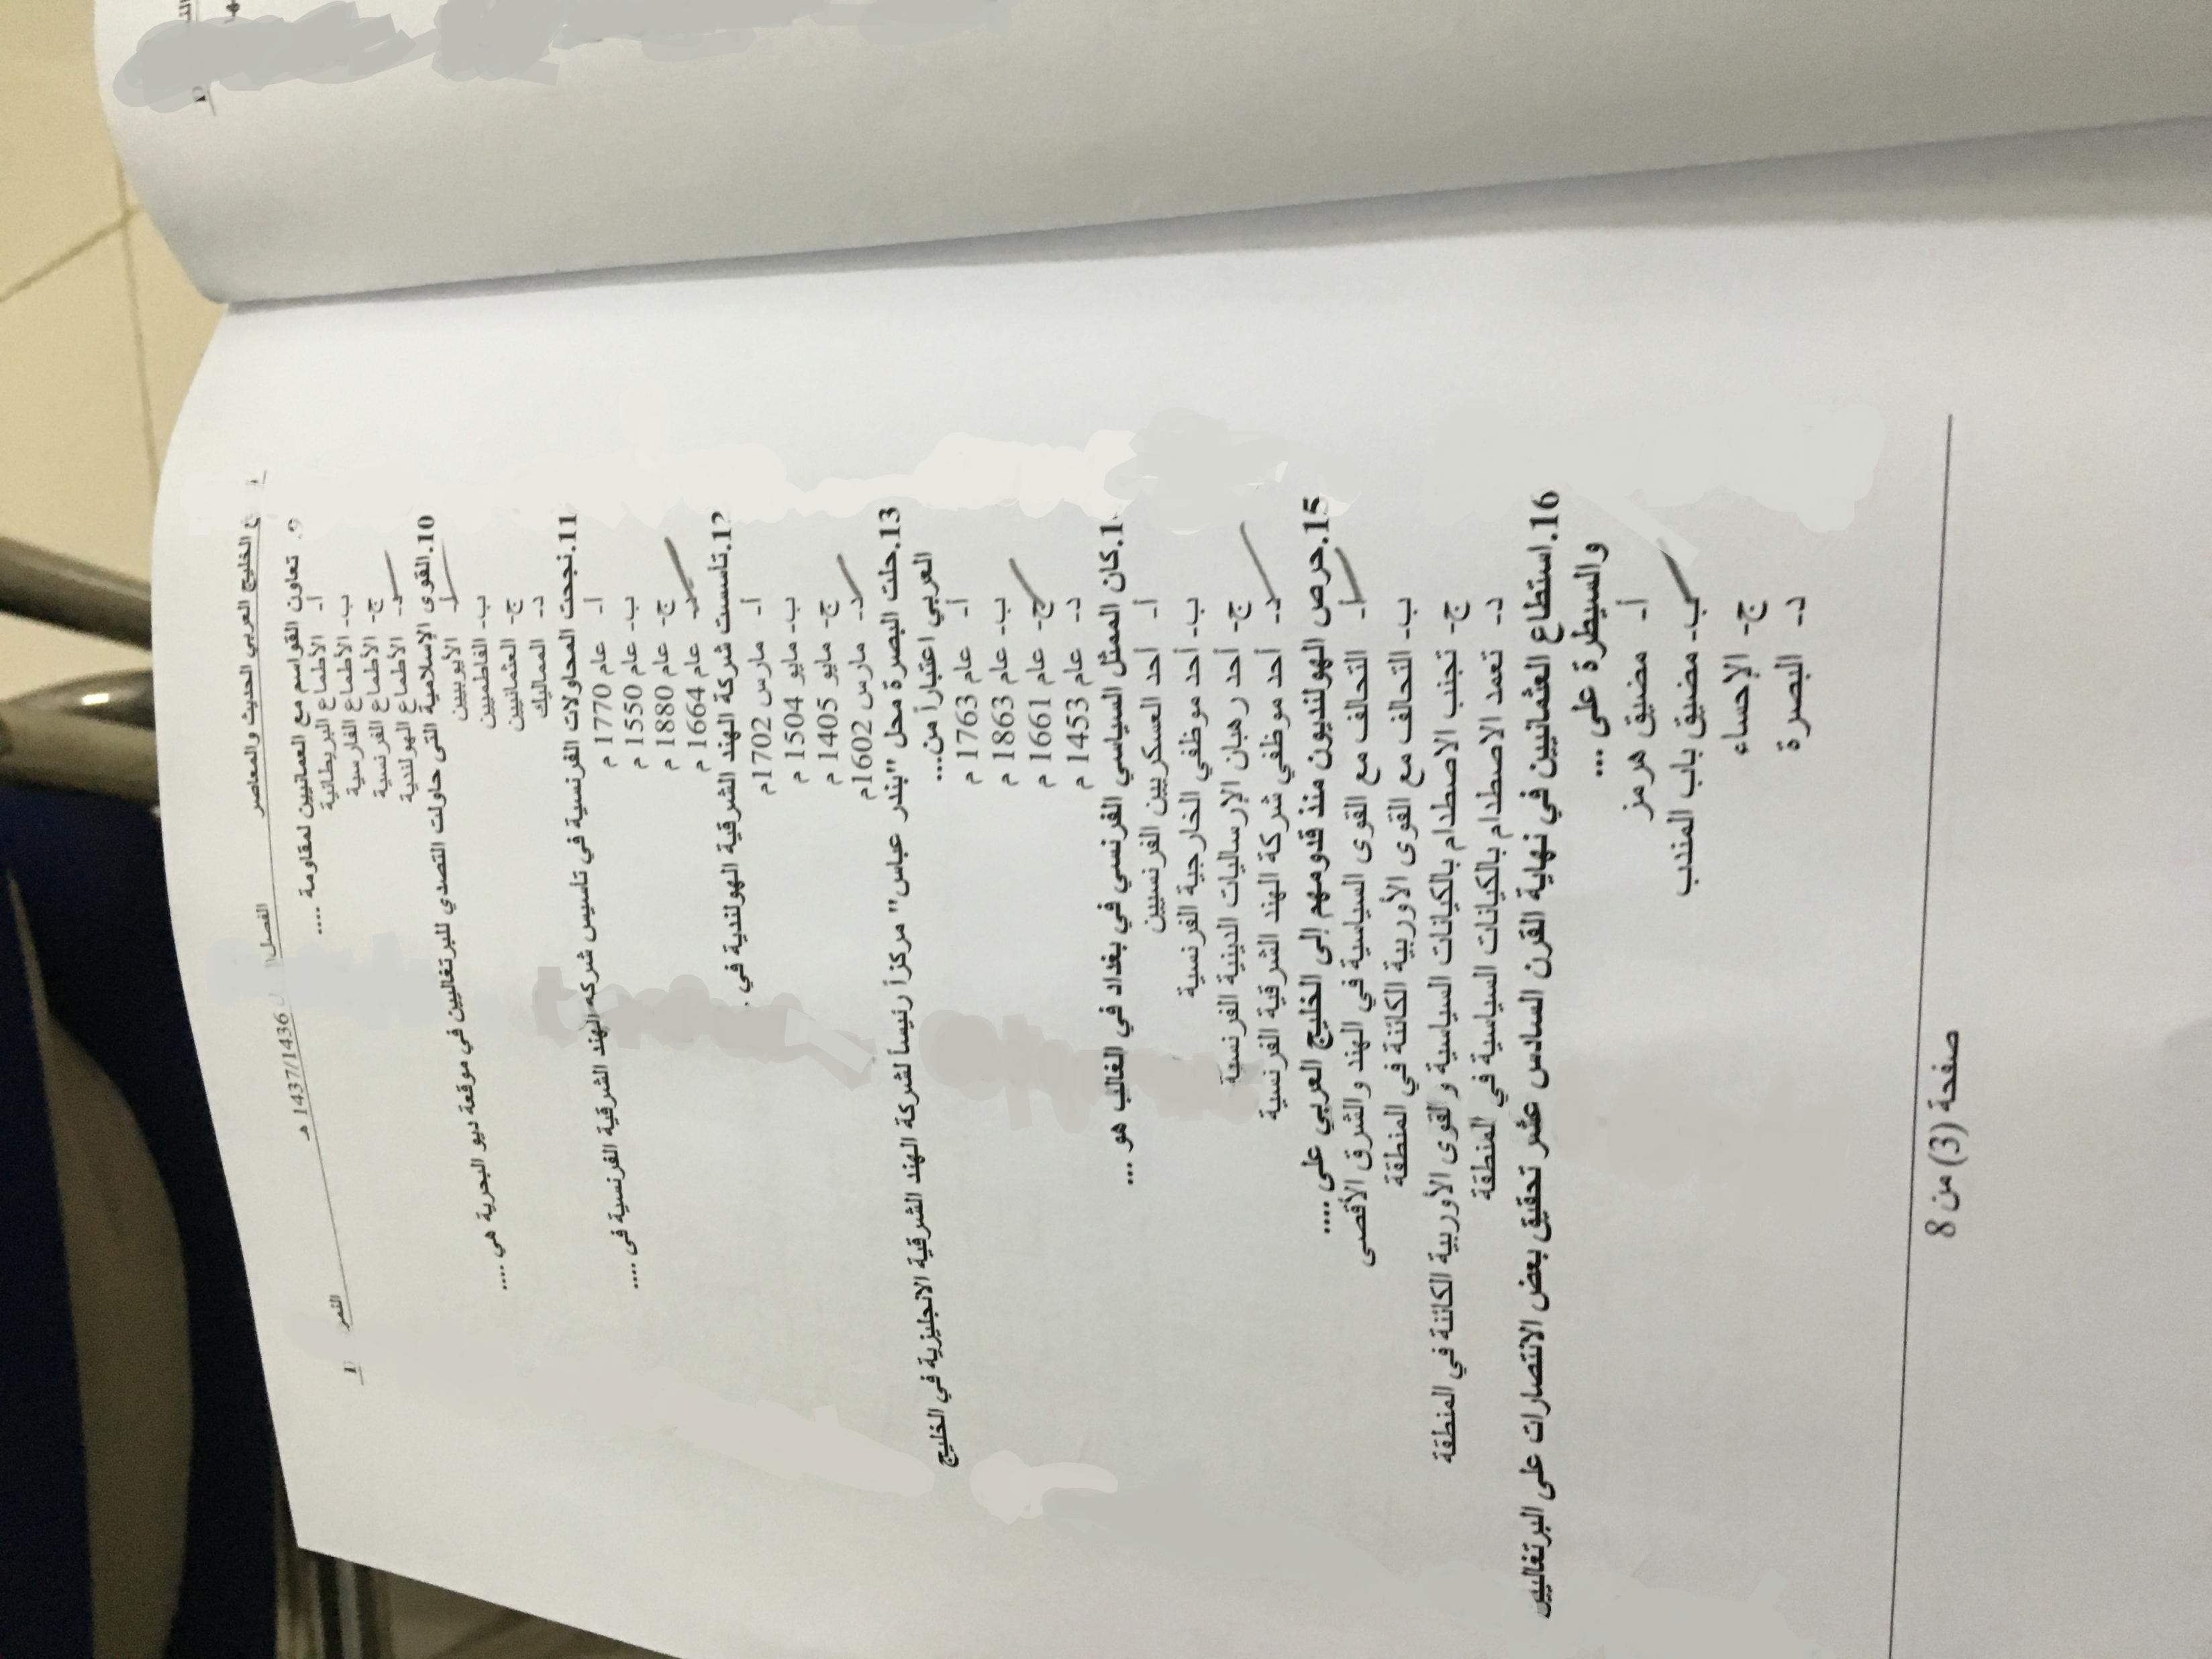 خ الخليج العربي الحديث والمعاصر
الفصل
1437/1436 هـ
9. تعاون القواسم مع العمانيين لمقاومة ....
أ- الأطماع البريطانية
ب- الأطماع الفارسية
ج- الأطماع الفرنسية
د- الأطماع الهولندية
10.القوى الإسلامية التى حاولت التصدي للبرتغاليين في موقعة ديو البحرية هي ....
أ- الأيوبيين
ب- الفاطميين
ج- العثمانيين
د- المماليك
11.نجحت المحاولات الفرنسية في تأسيس شركة الهند الشرقية الفرنسية فى ....
أ- عام 1770 م
ب- عام 1550 م
ج- عام 1880 م
د- عام 1664 م
12.تأسست شركة الهند الشرقية الهولندية في .
أ- مارس 1702م
ب- مايو 1504 م
ج- مايو 1405 م
د- مارس 1602م
13.حلت البصرة محل "بندر عباس" مركزاً رئيساً لشركة الهند الشرقية الانجليزية في الخليج
العربي اعتباراً من...
أ- عام 1763 م
ب- عام 1863 م
ج- عام 1661 م
د- عام 1453 م
1.كان الممثل السياسي الفرنسي في بغداد في الغالب هو ...
أ- أحد العسكريين الفرنسيين
ب- أحد موظفي الخارجية الفرنسية
ج- أحد رهبان الإرساليات الدينية الفرنسية
د- أحد موظفي شركة الهند الشرقية الفرنسية
15.حرص الهولنديون منذ قدومهم إلى الخليج العربي على ....
أ- التحالف مع القوى السياسية في الهند والشرق الأقصى
ب- التحالف مع القوى الأوربية الكائنة في المنطقة
ج- تجنب الاصطدام بالكيانات السياسية و القوى الأوربية الكائنة في المنطقة
د- تعمد الاصطدام بالكيانات السياسية في المنطقة
16.استطاع العثمانيين في نهاية القرن السادس عشر تحقيق بعض الانتصارات على البرتغاليين
والسيطرة على ...
أ- مضيق هرمز
ب- مضيق باب المندب
ج- الإحساء
د- البصرة
صفحة (3) من 8